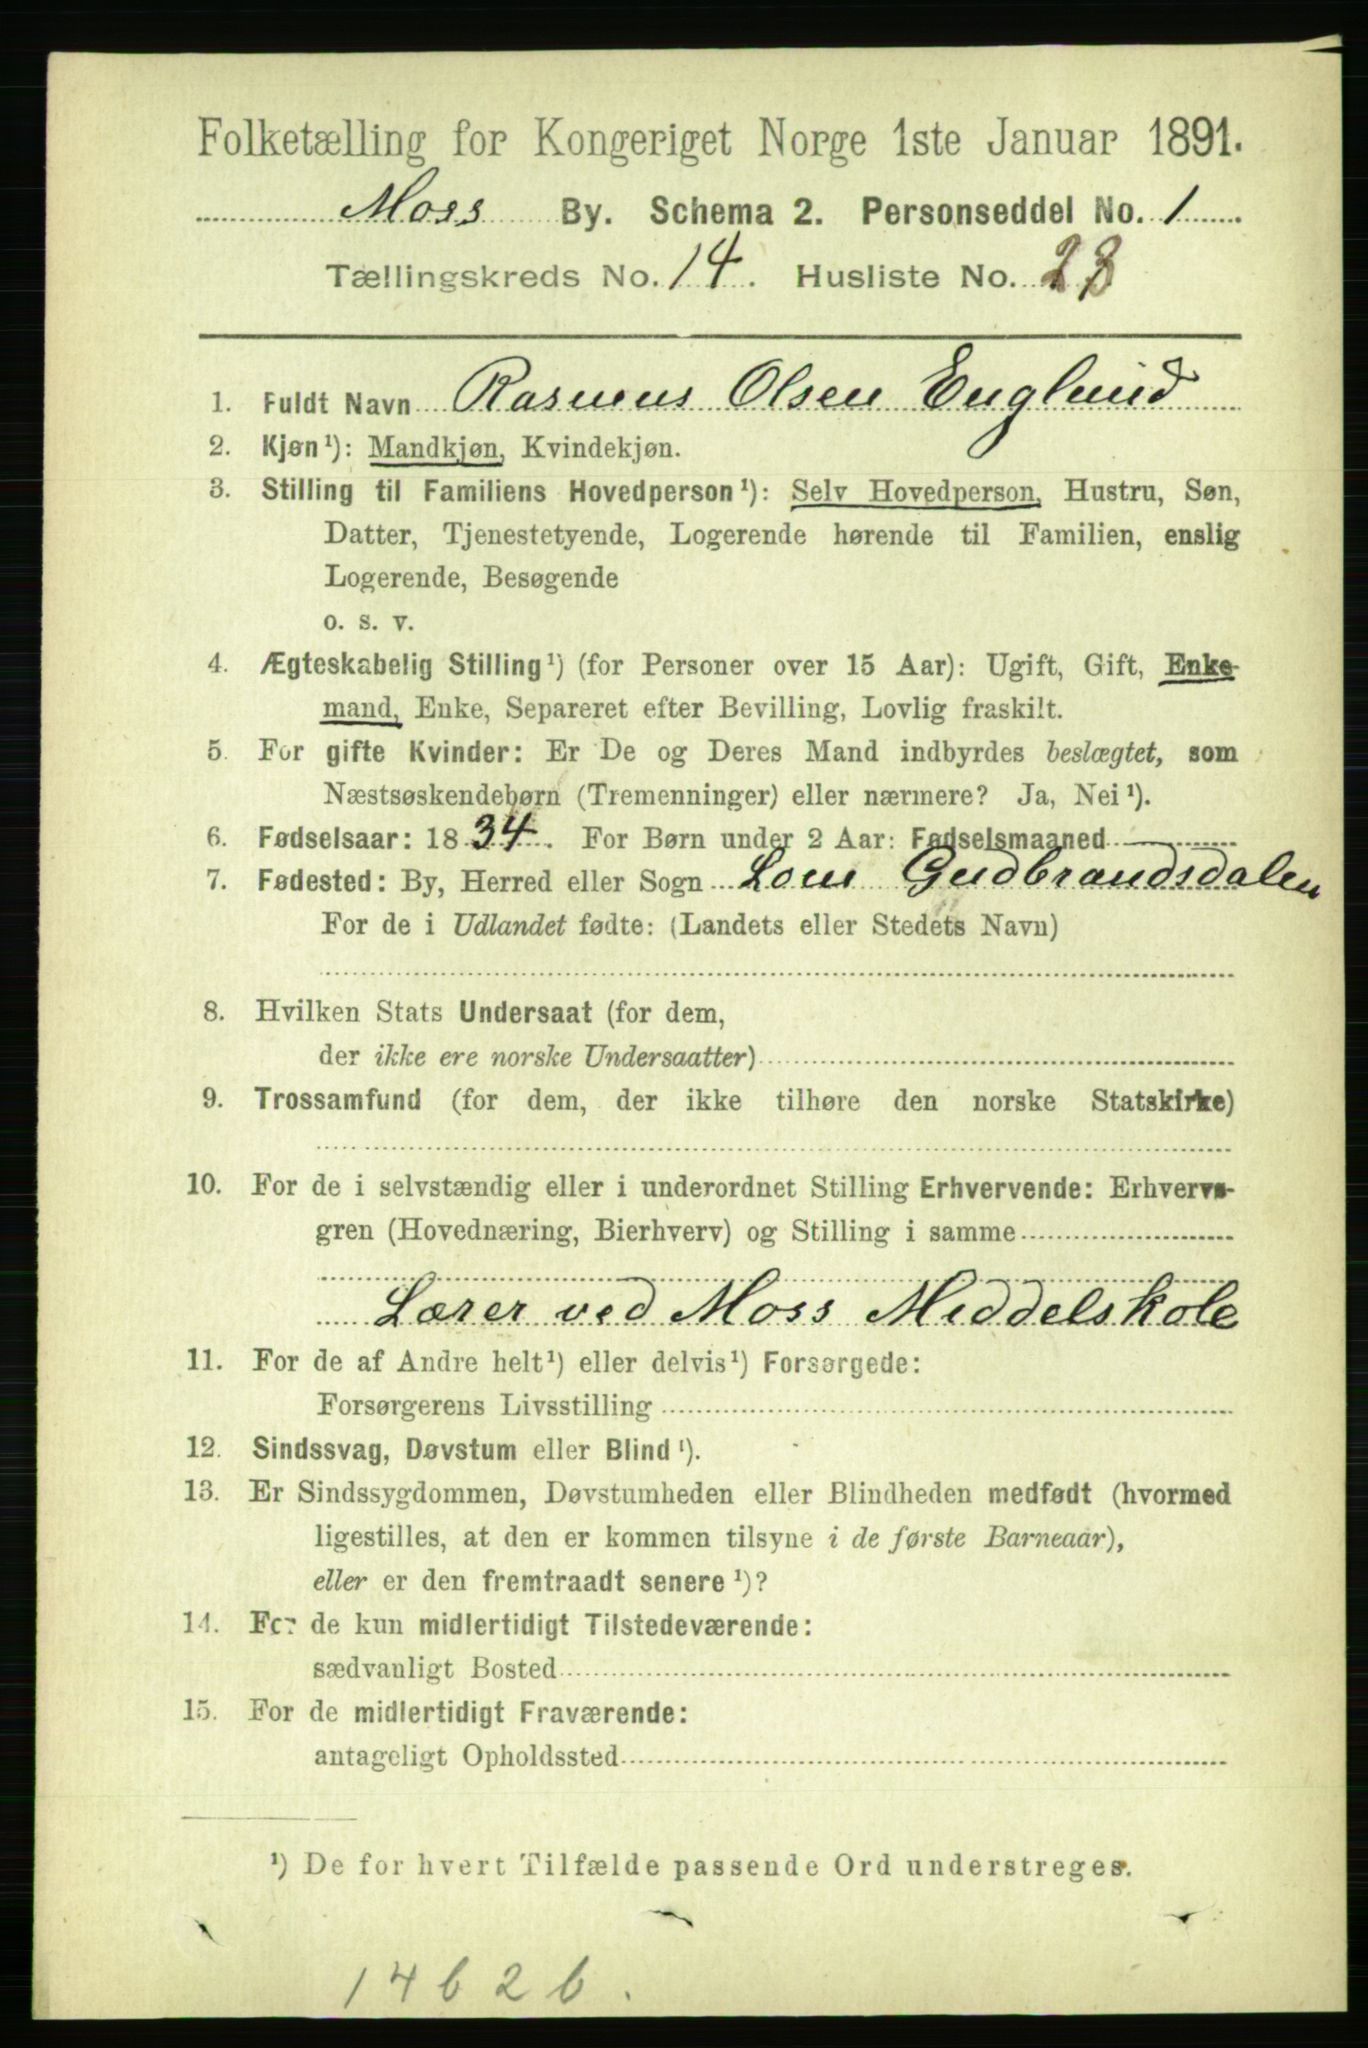 Folketælling for Kongeriget Norge 1ste Januar 1891.
Moss By. Schema 2. Personseddel No. 1
Tællingskreds No. 14. Husliste No. 28
1. Fuldt Navn Rasmus Olsen Englund
2. Kjøn¹): Mandkjøn, Kvindekjøn.
3. Stilling til Familiens Hovedperson¹): Selv Hovedperson, Hustru, Søn,
Datter, Tjenestetyende, Logerende hørende til Familien, enslig
Logerende, Besøgende
o. s. v.
4. Ægteskabelig Stilling¹) (for Personer over 15 Aar): Ugift, Gift, Enke-
mand, Enke, Separeret efter Bevilling, Lovlig fraskilt.
5. For gifte Kvinder: Er De og Deres Mand indbyrdes beslægtet, som
Næstsøskendebørn (Tremenninger) eller nærmere? Ja, Nei¹).
6. Fødselsaar: 1834. For Børn under 2 Aar: Fødselsmaaned
7. Fødested: By, Herred eller Sogn Lom Gudbrandsdalen
For de i Udlandet fødte: (Landets eller Stedets Navn)
8. Hvilken Stats Undersaat (for dem,
der ikke ere norske Undersaatter)
9. Trossamfund (for dem, der ikke tilhøre den norske Statskirke)
10. For de i selvstændig eller i underordnet Stilling Erhvervende: Erhvervs-
gren (Hovednæring, Bierhverv) og Stilling i samme
Lærer ved Moss Middelskole
11. For de af Andre helt¹) eller delvis¹) Forsørgede:
Forsørgerens Livsstilling
12. Sindssvag, Døvstum eller Blind¹).
13. Er Sindssygdommen, Døvstumheden eller Blindheden medfødt (hvormed
ligestilles, at den er kommen tilsyne i de første Barneaar),
eller er den fremtraadt senere¹)?
14. For de kun midlertidigt Tilstedeværende:
sædvanligt Bosted
15. For de midlertidigt Fraværende:
antageligt Opholdssted
¹) De for hvert Tilfælde passende Ord understreges.
14626.